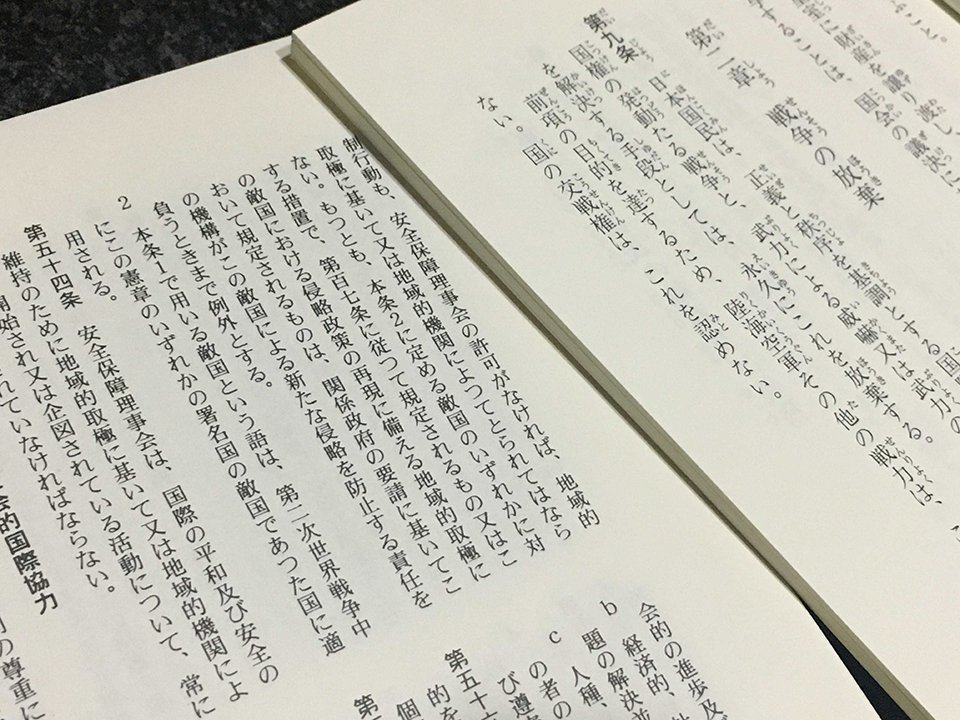 こと。
室に財産を譲り渡し、
することは、国会の議決に
第二章 戦争の放棄
第九条 日本国民は、正義と秩序を基調とする国際
国権の発動たる戦争と、武力による威嚇又は武力の
を解決する手段としては、永久にこれを放棄する。
前項の目的を達するため、陸海空軍その他の戦力は、こ
ない。国の交戦権は、これを認めない。
制行動も、安全保障理事会の許可がなければ、地域的
取極に基いて又は地域的機関によつてとられてはなら
ない。もつとも、本条2に定める敵国のいずれかに対
する措置で、第百七条に従つて規定されるもの又はこ
の敵国における侵略政策の再現に備える地域的取極に
おいて規定されるものは、関係政府の要請に基いてこ
の機構がこの敵国による新たな侵略を防止する責任を
負うときまで例外とする。
2 本条1で用いる敵国という語は、第二次世界戦争中
にこの憲章のいずれかの署名国の敵国であつた国に適
用される。
第五十四条 安全保障理事会は、国際の平和及び安全の
維持のために地域的取極に基いて又は地域的機関によ
開始され又は企図されている活動について、常に
れていなければならない。
会的国際協力
の尊重に
会的の進歩及
b 経済的、社
題の解決並
c 人種、
の者の
び遵
第五十
的を
個
第